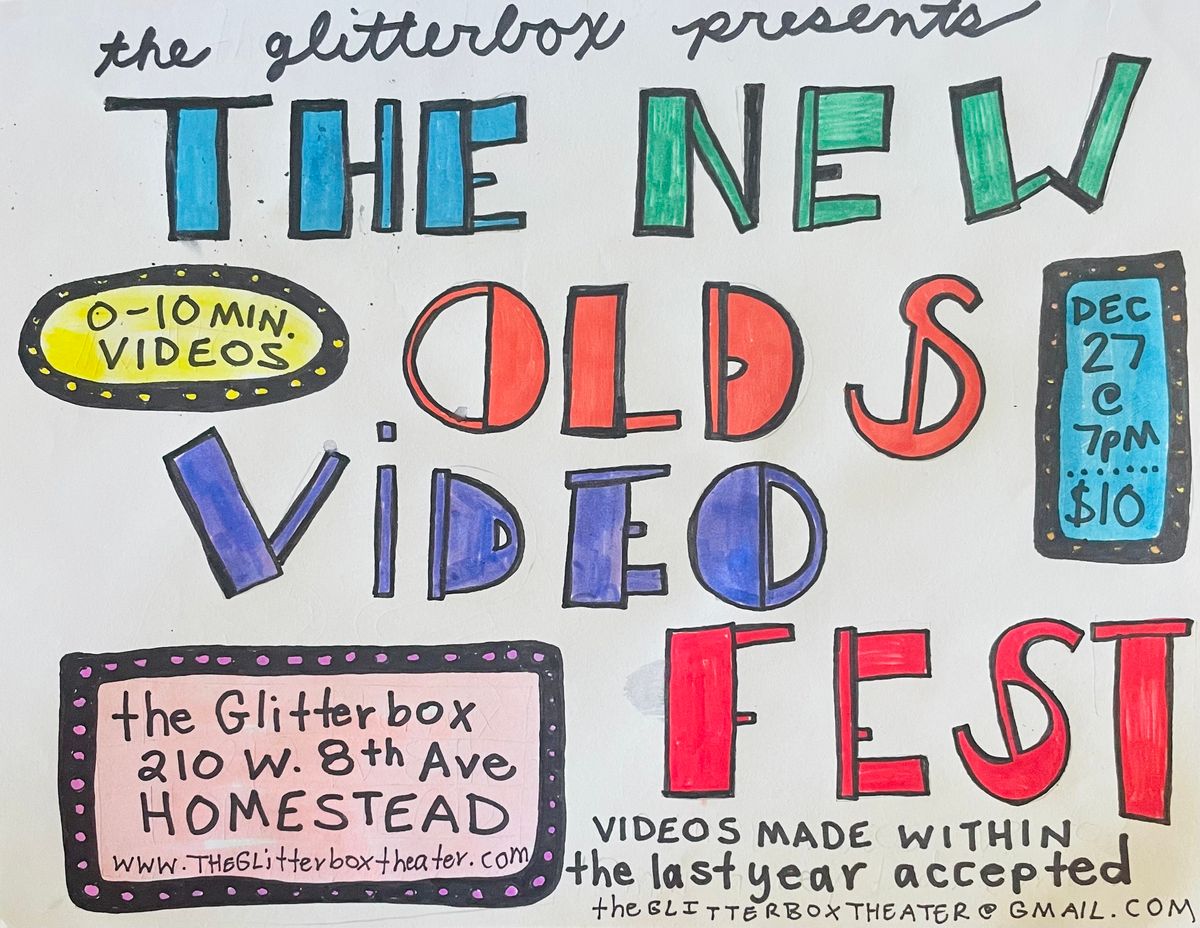 the glitterbox presents
THE NEW
OLDS
0-10 MIN.
VIDEOS
DEC
27
@
7PM
$10
ViDEO
FEST
the Glitterbox
210 W. 8th Ave
HOMESTEAD
www.THEGLitterboxtheater.com
VIDEOS MADE WITHIN
the last year accepted
theGLITTERBOXTHEATER@GMAIL.COM